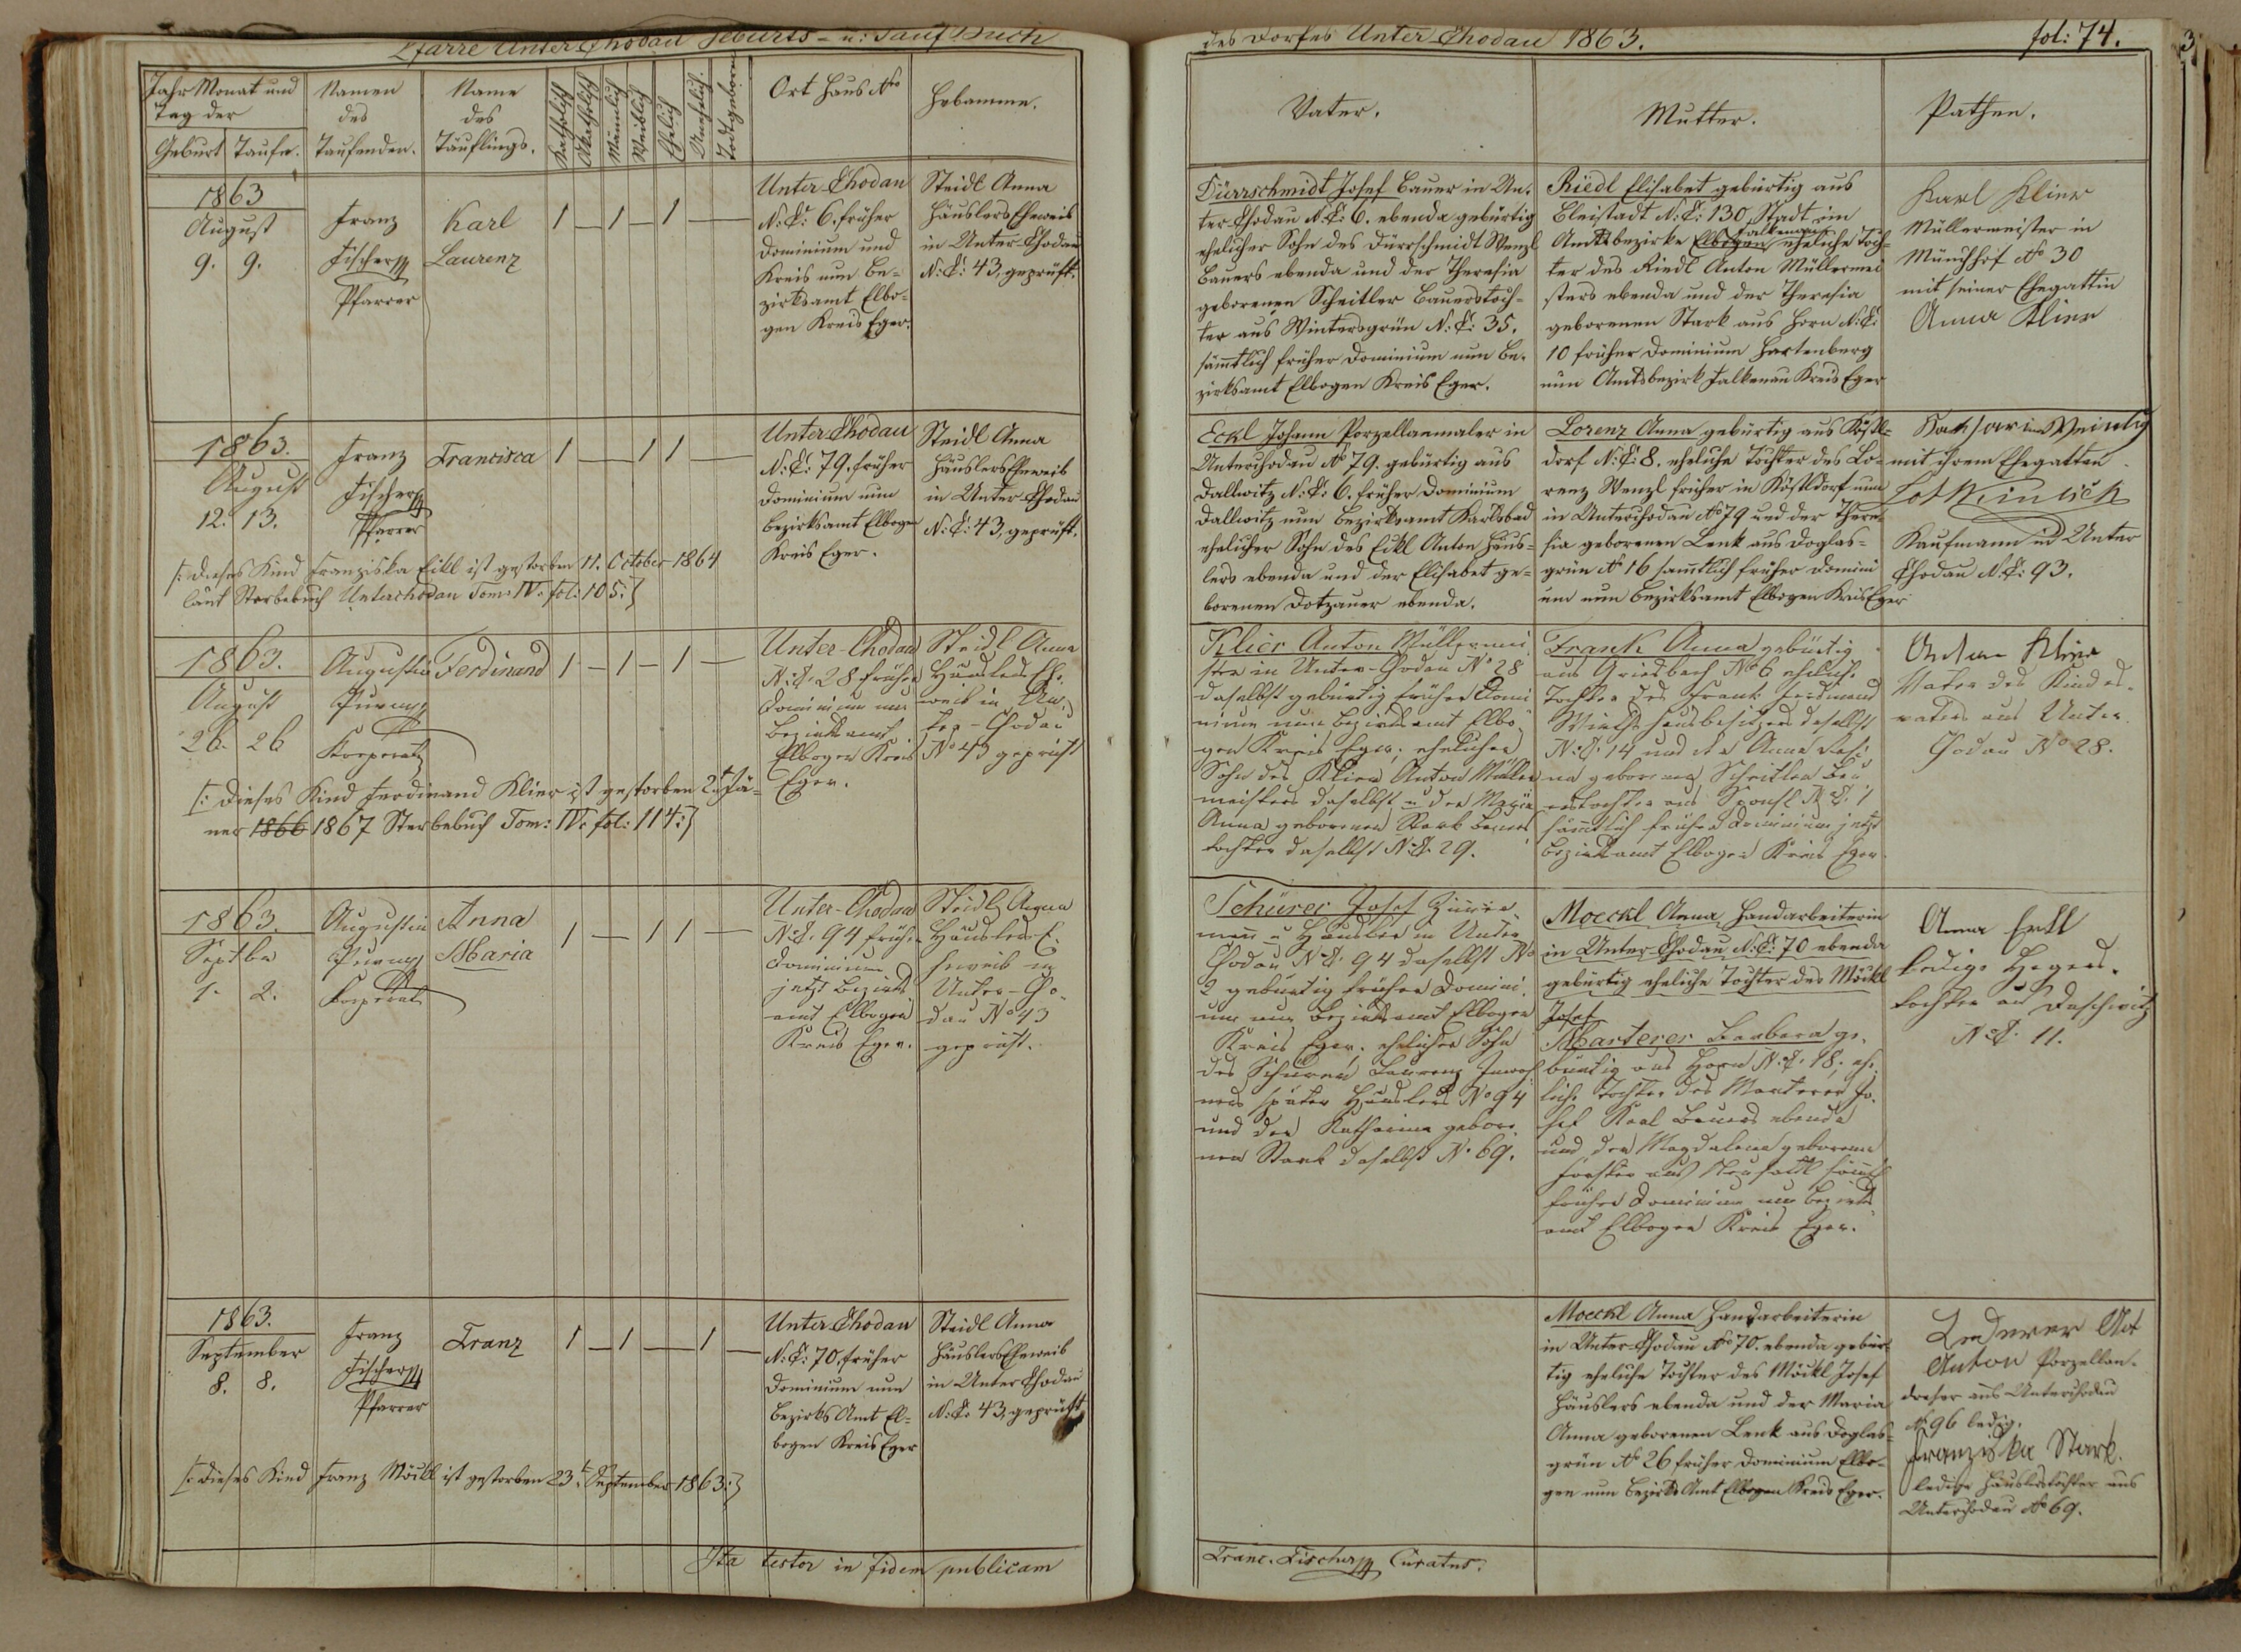 Pfarre Unter Chodau Geburts- u: Tauf Buch
des Dorfes Unter Chodau 1863.
fol: 74.
Jahr Monat und
Tag der
Geburt
Taufe.
Namen
des
Taufenden.
Name
des
Täuflings.
Katholisch
Akatholisch
Männlich
Weiblich
Ehelich
Unehelich.
Todtgeboren
Ort Haus Nro
Hebamme.
Vater.
Mutter.
Pathen.
1863
August
9. 9.
Franz
Fischer
Pfarrer
Karl
Laurenz
1 — 1 — 1 —
Unter Chodau
N:C: 6. früher
Dominium und
Kreis nun Be-
zirksamt Elbo-
gen Kreis Eger.
Steidl Anna
Häuslers Eheweib
in Unter Chodau
N:C: 43, geprüft.
Dürrschmidt Josef Bauer in Un-
ter Chodau N:C: 6. ebenda gebürtig
ehelicher Sohn des Dürrschmidt Wenzl
Bauers ebenda und der Theresia
geborenen Scheitler Bauerstoch-
ter aus Wintersgrün N:C: 35.
sämtlich früher Dominium nun Be-
zirksamt Elbogen Kreis Eger.
Riedl Elisabet gebürtig aus
Bleistadt N:C: 130, Stadt im
Falkenau
Amtsbezirke Elbogen eheliche Toch-
ter des Riedl Anton Müllermei
sters ebenda und der Theresia
geborenen Stark aus Horn N:C:
10 früher Dominium Hartenberg
nun Amtsbezirk Falkenau Kreis Eger
Karl Klier
Müllermeister in
Münchhof No 30
mit seiner Ehegattin
Anna Klier
1863.
August
12. 13.
Franz
Fischer
Pfarrer
Francisca
1 — 1 1 —
Unter Chodau
N:C: 79. früher
Dominium nun
Bezirksamt Elbogen
Kreis Eger.
Steidl Anna
Häuslers Eheweib
in Unter Chodau
N:C: 43, geprüft.
/: Dieses Kind Franziska Eckl ist gestorben 11. October 1864
laut Sterbebuch Unterchodau Tom: IV: fol: 105:/
Eckl Johann Porzellanmaler in
Unterchodau No 79. gebürtig aus
Dallwitz N:C: 6. früher Dominium
Dallwitz nun Bezirksamt Karlsbad
ehelicher Sohn des Eckl Anton Häus-
lers ebenda und der Elisabet ge-
borenen Dotzauer ebenda.
Lorenz Anna gebürtig aus Köstl-
dorf N:C: 8. eheliche Tochter des Lo-
renz Wenzl früher in Köstldorf nun
in Unterchodau No 79 und der There-
sia geborenen Lenk aus Doglas-
grün No 16 sämtlich früher Domini
um nun Bezirksamt Elbogen Kreis Eger
mit ihrem Ehegatten
Kaufmann in Unter
Chodau N:C: 93.
1863.
August
26. 26
Augustin
Korporatz
Ferdinand
1 — 1 — 1 —
Unter-Chodau
N:C: 28 früher
Dominium nun
Bezirksamt
Elbogen Kreis
Eger.
Steidl Anna
Häuslers Ehe-
weib in Un-
ter-Chodau
No 43 geprüft
/: Dieses Kind Ferdinand Klier ist gestorben 2t. Jä-
ner 1866 1867 Sterbebuch Tom: IV: fol: 114:/
Klier Anton Müllermei
ster in Unter-Chodau No 28
daselbst gebürtig früher Domi
nium nun Bezirksamt Elbo
gen Kreis Eger; ehelicher
Sohn des Klier Anton Müller
meisters daselbst u der Maria
Anna geborenen Stark Bauers
tochter daselbst N:C: 29.
Frank Anna gebürtig
aus Griesbach No 6 eheliche
Tochter des Frank Ferdinand
Wirthshausbesitzers daselbst
N:C: 14 und der Anna
na geborenen Scheitler Bau
erstochter aus N:C: 1
sämmtlich früher Dominium jetzt
Bezirksamt Elbogen Kreis Eger.
Anton Klier
Vater des Kindes-
vaters aus Unter-
Chodau No 28.
1863.
Septber
1. 2.
Augustin
Korporatz
Anna
Maria
1 — 1 1 —
Unter-Chodau
N:C: 94 früher
Dominium
jetzt Bezirks
amt Elbogen
Kreis Eger.
Steidl Anna
Häuslers E-
heweib in
Unter-Cho-
dau No 43
geprüft.
Schürer Josef Zimmer
mann u Häusler in Unter
Chodau N:C: 94 daselbst No
2 gebürtig früher Domini
um nun Bezirksamt Elbogen
Kreis Eger. ehelicher Sohn
des Schürer Laurenz Inwoh
ners später Häuslers No 94
und der Katharina gebore
nen Stark daselbst N. 69.
Moeckl Anna Handarbeiterin
in Unter Chodau N:C: 70 ebenda
gebürtig eheliche Tochter des Möckl
Josef
Marterer Barbara ge-
bürtig aus Horn N:C: 18; ehe
liche Tochter des Marterer Jo-
sef Karl Bauers ebenda
und der Magdalena geborenen
Forster aus Neusattl sämtl
früher Dominium nun Bezirks
amt Elbogen Kreis Eger.
Anna Eckl
ledige Hegers-
tochter aus Daschwitz
N:C: 11.
1863.
September
8. 8.
Franz
Fischer
Pfarrer
Franz
1 — 1 — 1 —
Unter Chodau
N:C: 70, früher
Dominium nun
Bezirks Amt El-
bogen Kreis Eger
Steidl Anna
Häuslers Eheweib
in Unter Chodau
N:C: 43, geprüft
/: Dieses Kind Franz Möckl ist gestorben 23t. September 1863:/
Moeckl Anna Handarbeiterin
in Unter Chodau No 70. ebenda gebür-
tig eheliche Tochter des Möckl Josef
Häuslers ebenda und der Maria
Anna geborenen Lenk aus Doglas-
grün No 26 früher Dominium Elbo-
gen nun Bezirks Amt Elbogen Kreis Eger.
Lederer Ant
Anton Porzellan-
dreher aus Unterchodau
No 96 ledig.
Franziska Stark.
ledige Häuslerstochter aus
Unterchodau No 69.
Ita testor in fidem publicam
Franc. Fischer Curatus.